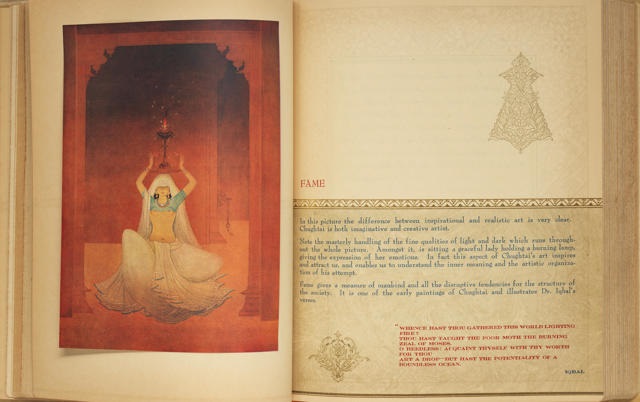 FAME
In this picture the difference between inspirational and realistic art is very clear.
Chughtai is both imaginative and creative artist.
Note the masterly handling of the fine qualities of light and dark which runs through-
out the whole picture. Amongst it, is sitting a graceful lady holding a burning lamp,
giving the expression of her emotions. In fact this aspect of Chughtai's art inspires
and attract us, and enables us to understand the inner meaning and the artistic organiza-
tion of his attempt.
Fame gives a measure of mankind and all the disruptive tendencies for the structure of
the society. It is one of the early paintings of Chughtai and illustrates Dr. Iqbal's
verses.
"WHENCE HAST THOU GATHERED THIS WORLD LIGHTING
FIRE?
THOU HAST TAUGHT THE POOR MOTH THE BURNING
ZEAL OF MOSES.
O HEEDLESS! ACQUAINT THYSELF WITH THY WORTH
FOR THOU
ART A DROP—BUT HAST THE POTENTIALITY OF A
BOUNDLESS OCEAN.
IQBAL